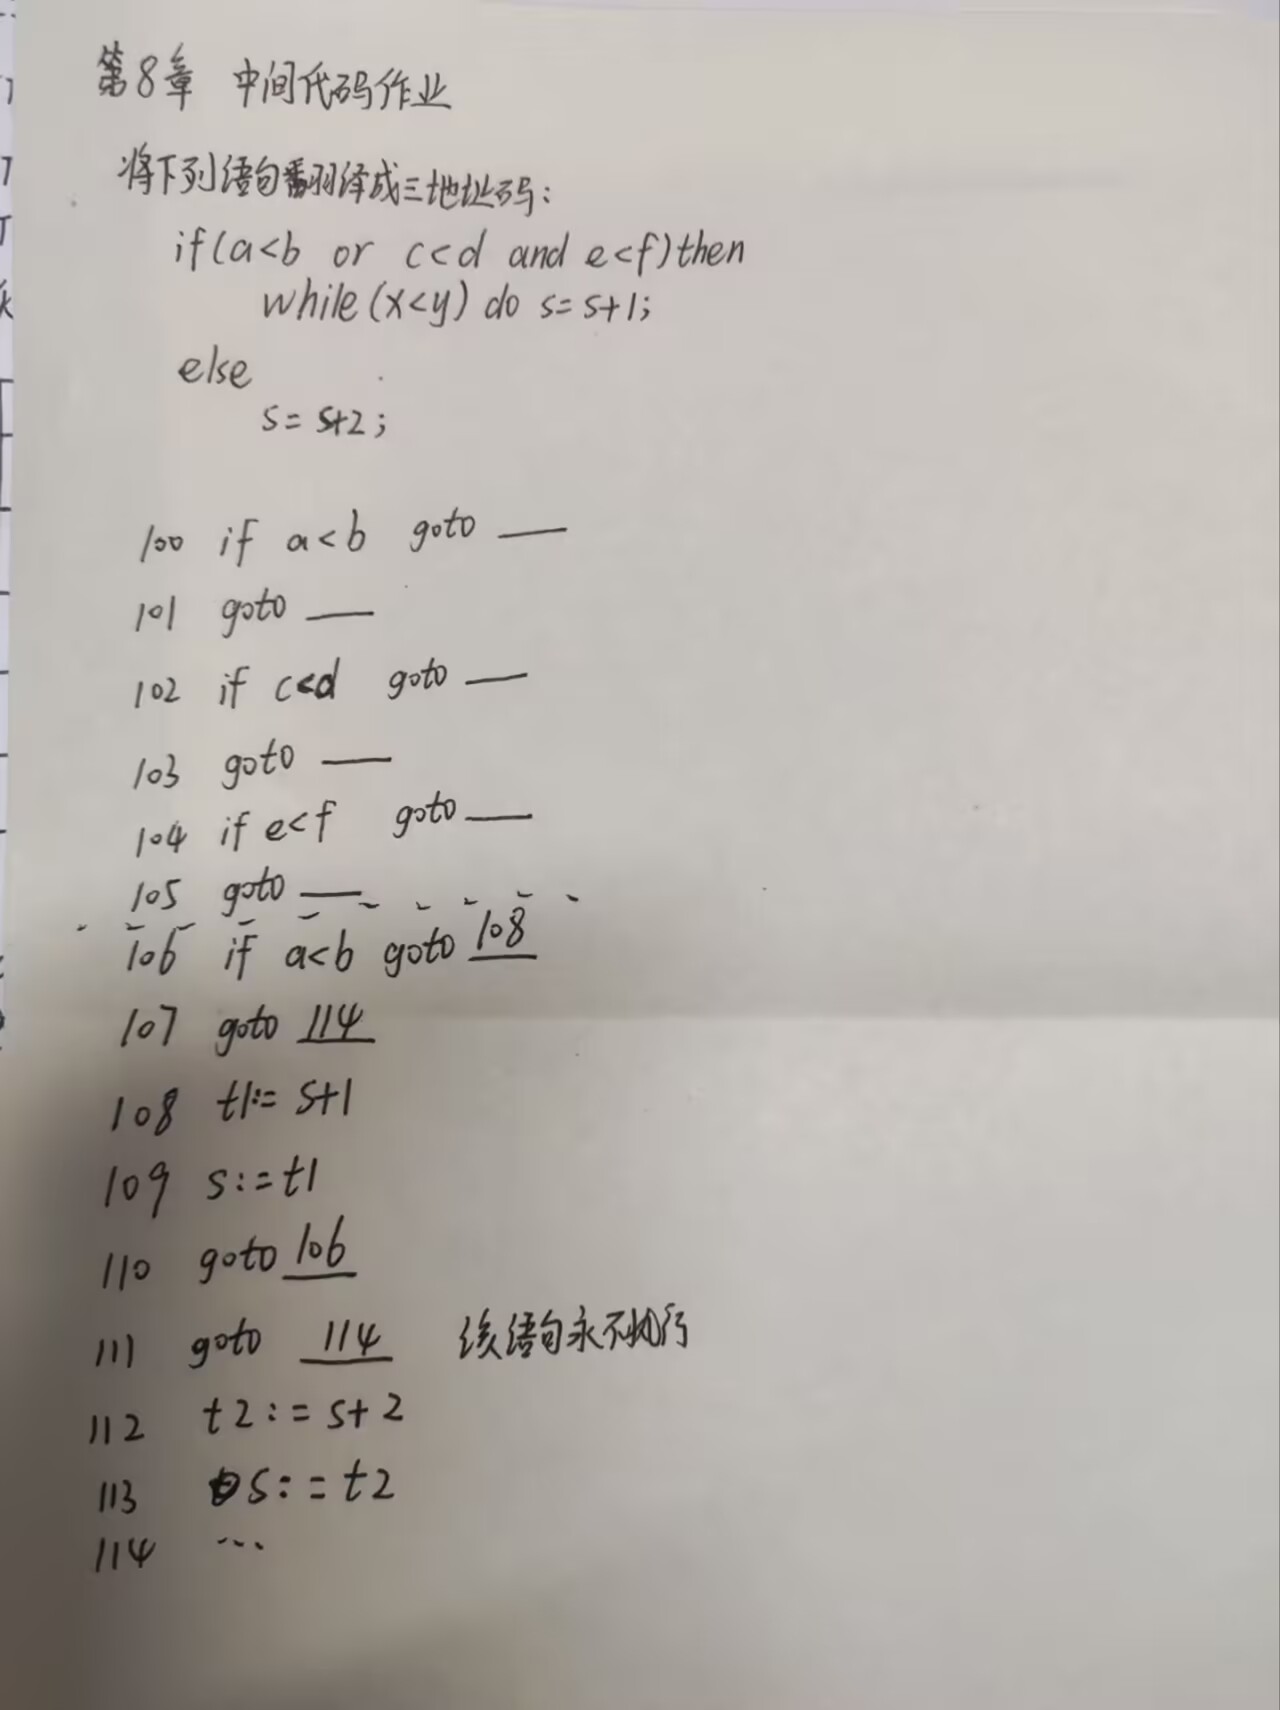 第8章 中间代码作业
将下列语句翻译成三地址码:
if(a<b or c<d and e<f)then
while(x<y) do s=s+1;
else
s=s+2;
100 if a<b goto —
101 goto —
102 if c<d goto —
103 goto —
104 if e<f goto —
105 goto —
106 if a<b goto 108
107 goto 114
108 t1:=s+1
109 s:=t1
110 goto 106
111 goto 114 该语句永不执行
112 t2:=s+2
113 s:=t2
114 ...